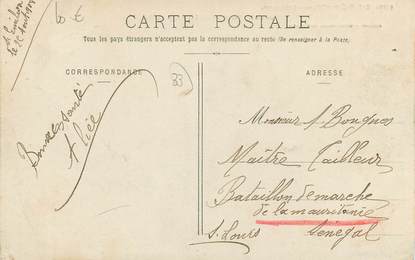 CARTE POSTALE
Tous les pays étrangers n'acceptent pas la correspondance au recto (Se renseigner à la Poste)
CORRESPONDANCE
ADRESSE
B3
Bonne santé
Alice
Monsieur A. Bougnos
Maître Tailleur
Bataillon de marche
de la mauritanie
St Louis Sénégal